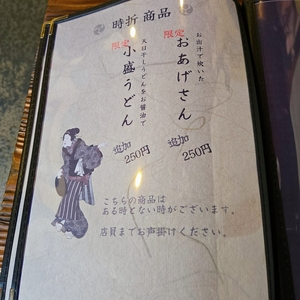 時折 商品
お出汁で炊いた
限定
おあげさん
追加
250円
天日干しうどんをお醤油で
限定
小盛うどん
追加
250円
こちらの商品は
ある時とない時がございます。
店員までお声掛けください。